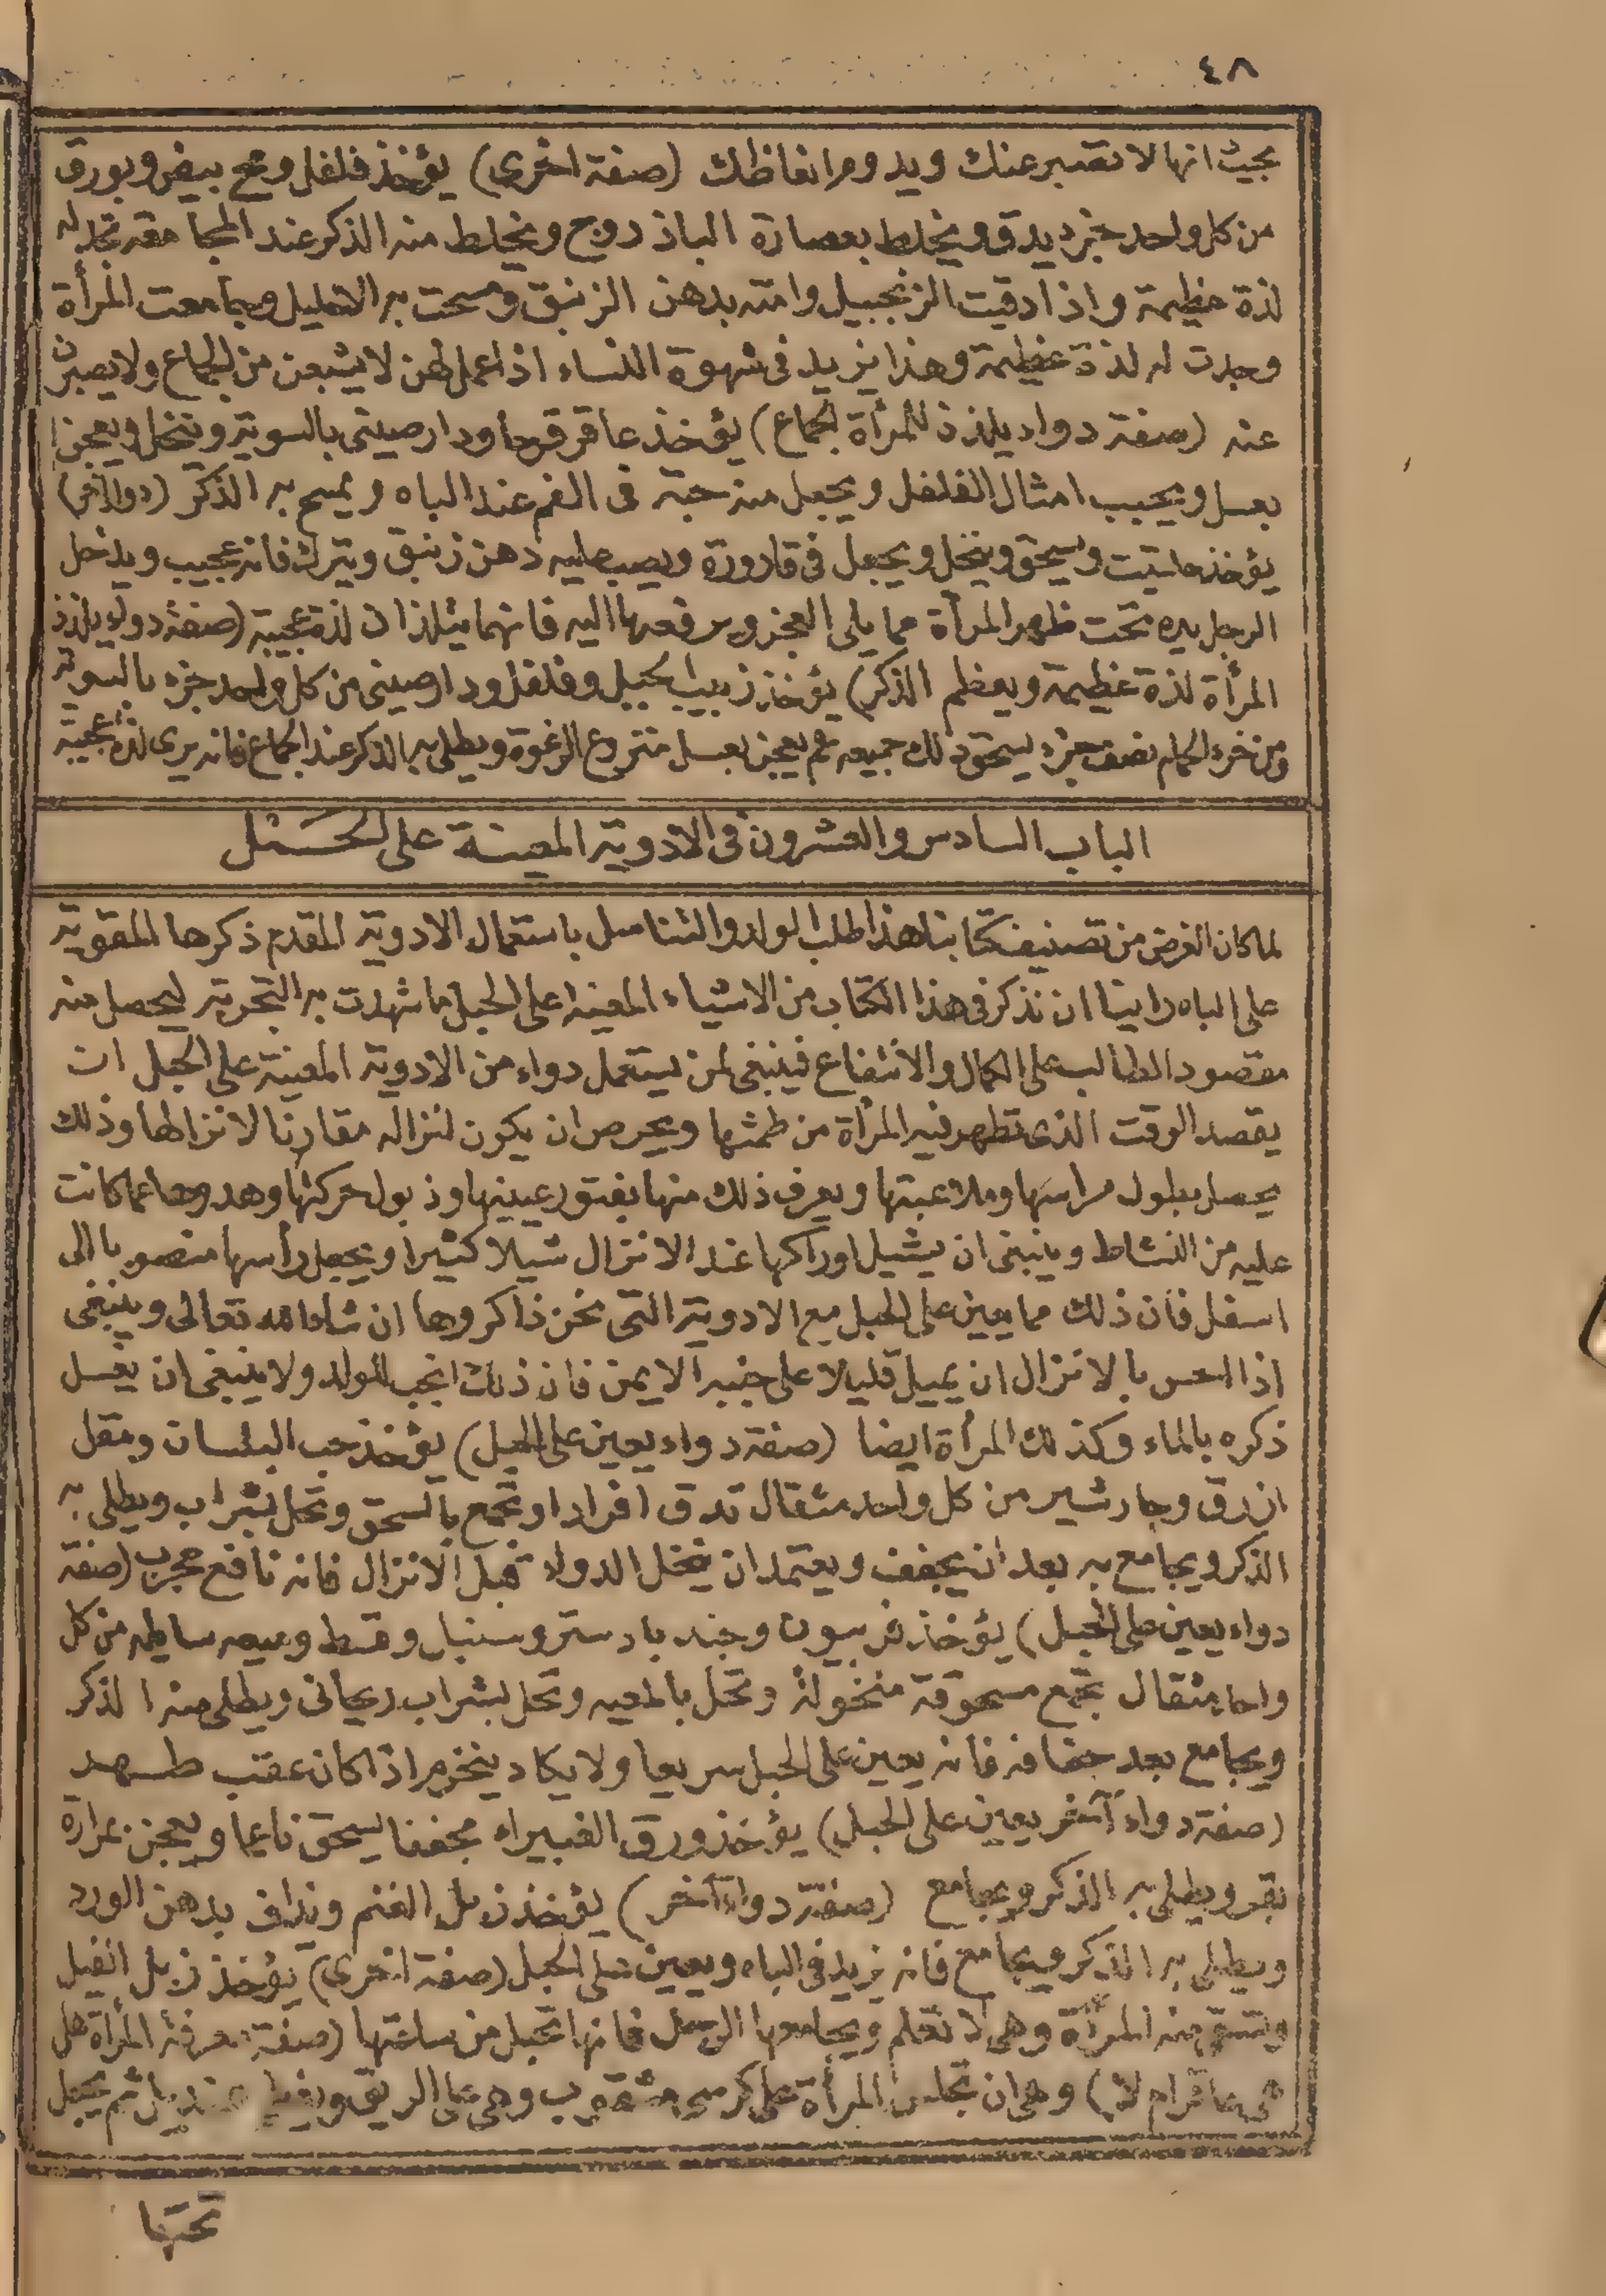 ٤٨
بحيث انها لا تصبر عنك ويدوم انعاظك (صفة اخرى) يؤخذ فلفل ومخ بيض وبورق
من كل واحد جزء يدق ويخلط بعصارة الباذروج ويخلط منه الذكر عند المجامعة تجد له
لذة عظيمة واذا دقيت الزنجبيل وامته بدهن الزنبق ومسحت به الاحليل وجامعت المرأة
وجدت له لذة عظيمة وهذا يزيد فى شهوة النساء اذا عمل لهن لا يشبعن من الجماع ولا يصبرن
عنه (صفة دواء يلذذ للمرأة الجماع) يؤخذ عاقرقرحا ودارصينى بالسوية وينخل ويعجن
بعسل ويحبب امثال الفلفل ويجعل منه حبة فى الفم عند الباه ويمسح به الذكر (دواء آخر)
يؤخذ حلتيت ويسحق وينخل ويجعل فى قارورة ويصب عليه دهن زنبق ويترك فانه عجيب ويدخل
الرجل يده تحت ظهر المرأة مما يلى العجز ويرفعها اليه فانهما يتلذذان لذة عجيبة (صفة دواء يلذذ
المرأة لذة عظيمة ويعظم الذكر) يؤخذ زبيب الجبل وفلفل ودارصينى من كل واحد جزء بالسوية
ومن خرء الحمام نصف جزء يسحق ذلك جميعه ثم يعجن بعسل منزوع الرغوة ويطلى به الذكر عند الجماع فانه يرى لذة عجيبة
الباب السادس والعشرون فى الادوية المعينة على الحبل
لما كان الغرض من تصنيف كتابنا هذا طلب الولد والتناسل باستعمال الادوية المقدم ذكرها المقوية
على الباه رأينا ان نذكر فى هذا الكتاب من الاشياء المعينه على الحبل ما شهدت به التجربة ليحصل منه
مقصود الطالب على الكمال والانتفاع فينبغى لمن يستعمل دواء من الادوية المعينة على الحبل ان
يقصد الوقت الذى تطهر فيه المرأة من طمثها ويحرص ان يكون انزاله مقارنا لانزالها وذلك
يحصل بطول مراسها وملاعبتها ويعرف ذلك منها بفتور عينيها وذبول حركتها وهدوها عما كانت
عليه من النشاط وينبغى ان يشيل اوراكها عند الانزال شيلا كثيرا ويجعل رأسها منصوبا الى
اسفل فان ذلك مما يعين على الحبل مع الادوية التى نحن ذاكروها ان شاء الله تعالى وينبغى
اذا احس بالانزال ان يميل قليلا على جنبه الايمن فان ذلك انجب للولد ولا ينبغى ان يغسل
ذكره بالماء وكذلك المرأة ايضا (صفة دواء يعين على الحبل) يؤخذ حب البلسان ومقل
ازرق وجاوشير من كل واحد مثقال تدق افرادا وتجمع بالسحق وتحل بشراب ويطلى به
الذكر ويجامع به بعد ان يجفف ويعتمد ان ينحل الدواء قبل الانزال فانه نافع مجرب (صفة
دواء يعين على الحبل) يؤخذ فربيون وجندبادستر وسنبل وقسط وميعه سايله من كل
واحد مثقال تجمع مسحوقة منخولة وتحل بالميعه وتحل بشراب ريحانى ويطلى منه الذكر
ويجامع بعد جفافه فانه يعين على الحبل سريعا ولا يكاد ينخرم اذا كان عقب طهر
(صفة دواء آخر يعين على الحبل) يؤخذ ورق الغبيراء مجففا يسحق ناعما ويعجن بمرارة
بقر ويطلى به الذكر ويجامع (صفة دواء آخر) يؤخذ زبل الغنم ويذاف بدهن الورد
ويطلى به الذكر ويجامع فانه يزيد فى الباه ويعين على الحبل (صفة اخرى) يؤخذ زبل الفيل
وتسقى منه المرأة وهى لا تعلم ويجامعها الرجل فانها تحبل من ساعتها (صفة معرفة المرأة هل
هى عاقر ام لا) وهى ان تجلس المرأة على كرسى مثقوب وهى على الريق ويغطى بمنديل ثم يجعل
تحتها